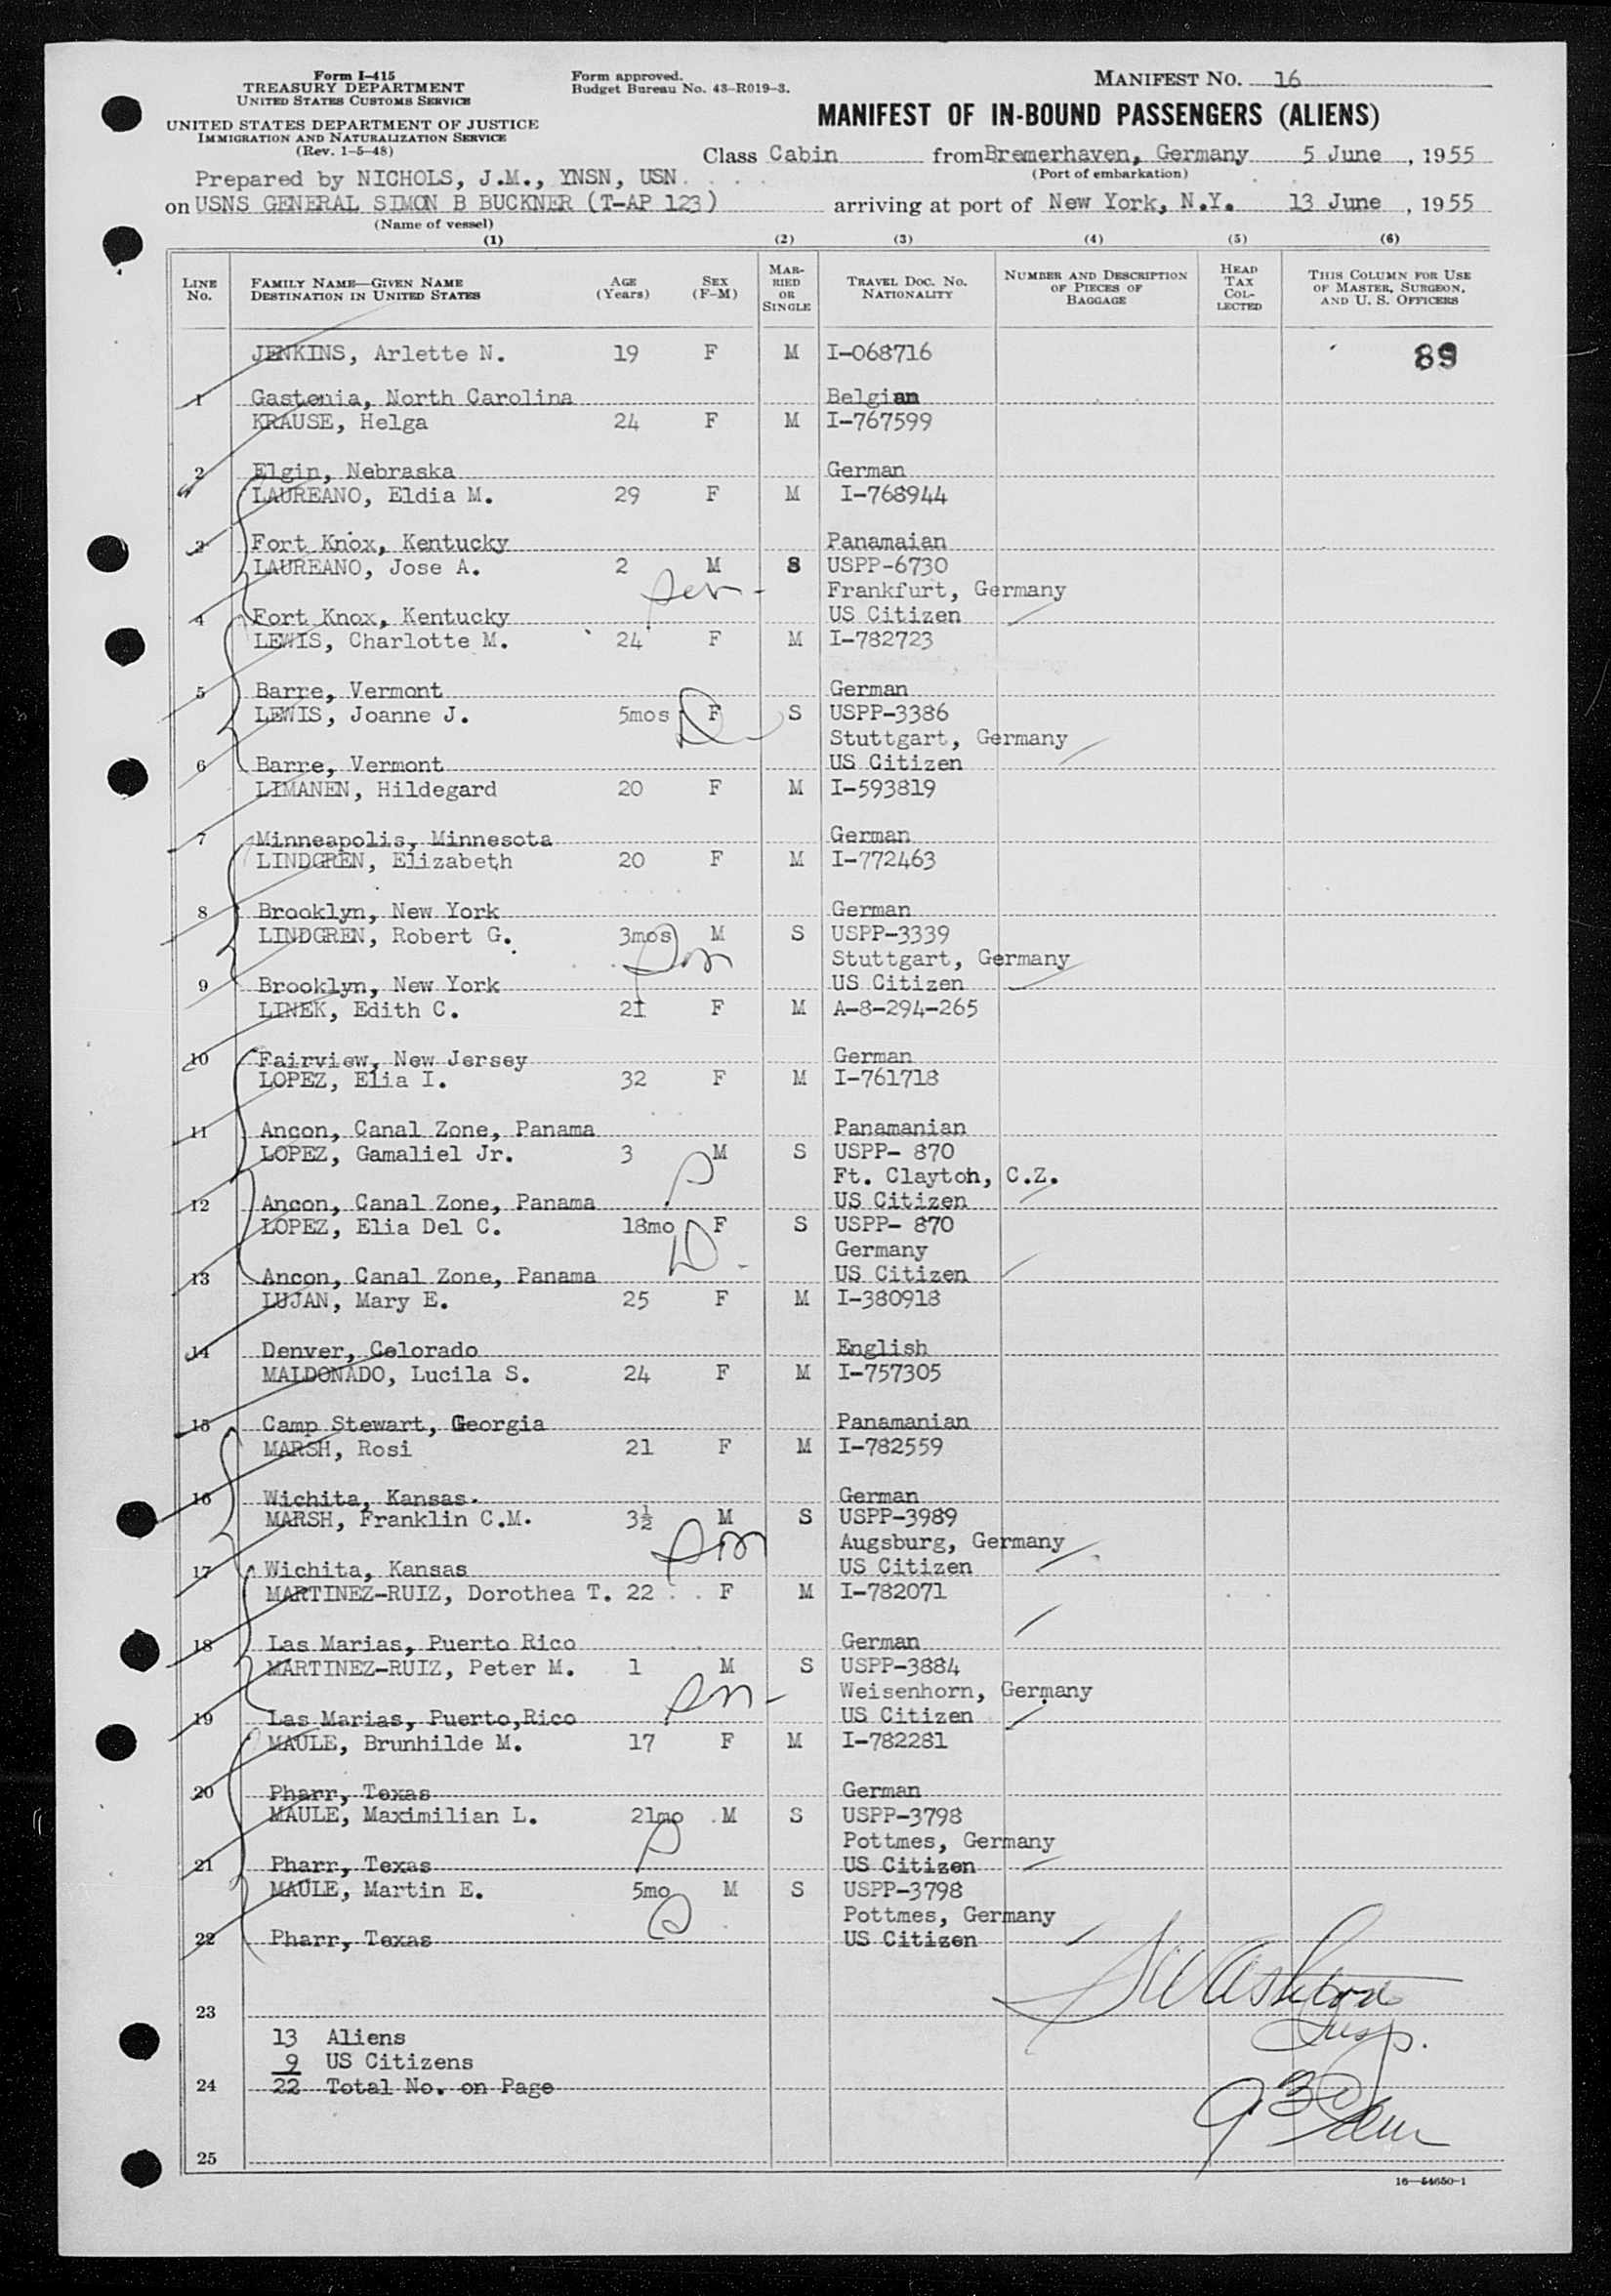 Form I-415
TREASURY DEPARTMENT
UNITED STATES CUSTOMS SERVICE
UNITED STATES DEPARTMENT OF JUSTICE
IMMIGRATION AND NATURALIZATION SERVICE
(Rev. 1-5-48)
Form approved.
Budget Bureau No. 43-R019-3.
MANIFEST NO. 16
MANIFEST OF IN-BOUND PASSENGERS (ALIENS)
Class Cabin from Bremerhaven, Germany 5 June, 1955
(Port of embarkation)
Prepared by NICHOLS, J.M., YNSN, USN
on USNS GENERAL SIMON B BUCKNER (T-AP 123) arriving at port of New York, N.Y. 13 June, 1955
(Name of vessel)
(1) (2) (3) (4) (5) (6)
LINE No. FAMILY NAME—GIVEN NAME DESTINATION IN UNITED STATES AGE (Years) SEX (F-M) MARRIED OR SINGLE TRAVEL DOC. NO. NATIONALITY NUMBER AND DESCRIPTION OF PIECES OF BAGGAGE HEAD TAX COLLECTED THIS COLUMN FOR USE OF MASTER, SURGEON, AND U. S. OFFICERS
JENKINS, Arlette N. 19 F M I-068716 89
1 Gastonia, North Carolina Belgian
KRAUSE, Helga 24 F M I-767599
2 Elgin, Nebraska German
LAUREANO, Eldia M. 29 F M I-768944
3 Fort Knox, Kentucky Panamaian
LAUREANO, Jose A. 2 M S USPP-6730
Frankfurt, Germany
4 Fort Knox, Kentucky US Citizen
LEWIS, Charlotte M. 24 F M I-782723
5 Barre, Vermont German
LEWIS, Joanne J. 5mos F S USPP-3386
Stuttgart, Germany
6 Barre, Vermont US Citizen
LIMANEN, Hildegard 20 F M I-593819
7 Minneapolis, Minnesota German
LINDGREN, Elizabeth 20 F M I-772463
8 Brooklyn, New York German
LINDGREN, Robert G. 3mos M S USPP-3339
Stuttgart, Germany
9 Brooklyn, New York US Citizen
LINEK, Edith C. 21 F M A-8-294-265
10 Fairview, New Jersey German
LOPEZ, Elia I. 32 F M I-761718
11 Ancon, Canal Zone, Panama Panamanian
LOPEZ, Gamaliel Jr. 3 M S USPP- 870
Ft. Clayton, C.Z.
12 Ancon, Canal Zone, Panama US Citizen
LOPEZ, Elia Del C. 18mo F S USPP- 870
Germany
13 Ancon, Canal Zone, Panama US Citizen
LUJAN, Mary E. 25 F M I-380918
14 Denver, Colorado English
MALDONADO, Lucila S. 24 F M I-757305
15 Camp Stewart, Georgia Panamanian
MARSH, Rosi 21 F M I-782559
16 Wichita, Kansas. German
MARSH, Franklin C.M. 3½ M S USPP-3989
Augsburg, Germany
17 Wichita, Kansas US Citizen
MARTINEZ-RUIZ, Dorothea T. 22 F M I-782071
18 Las Marias, Puerto Rico German
MARTINEZ-RUIZ, Peter M. 1 M S USPP-3884
Weisenhorn, Germany
19 Las Marias, Puerto,Rico US Citizen
MAULE, Brunhilde M. 17 F M I-782281
20 Pharr, Texas German
MAULE, Maximilian L. 21mo M S USPP-3798
Pottmes, Germany
21 Pharr, Texas US Citizen
MAULE, Martin E. 5mo M S USPP-3798
Pottmes, Germany
22 Pharr, Texas US Citizen
23
13 Aliens
9 US Citizens
24 22 Total No. on Page
25
16—54650-1